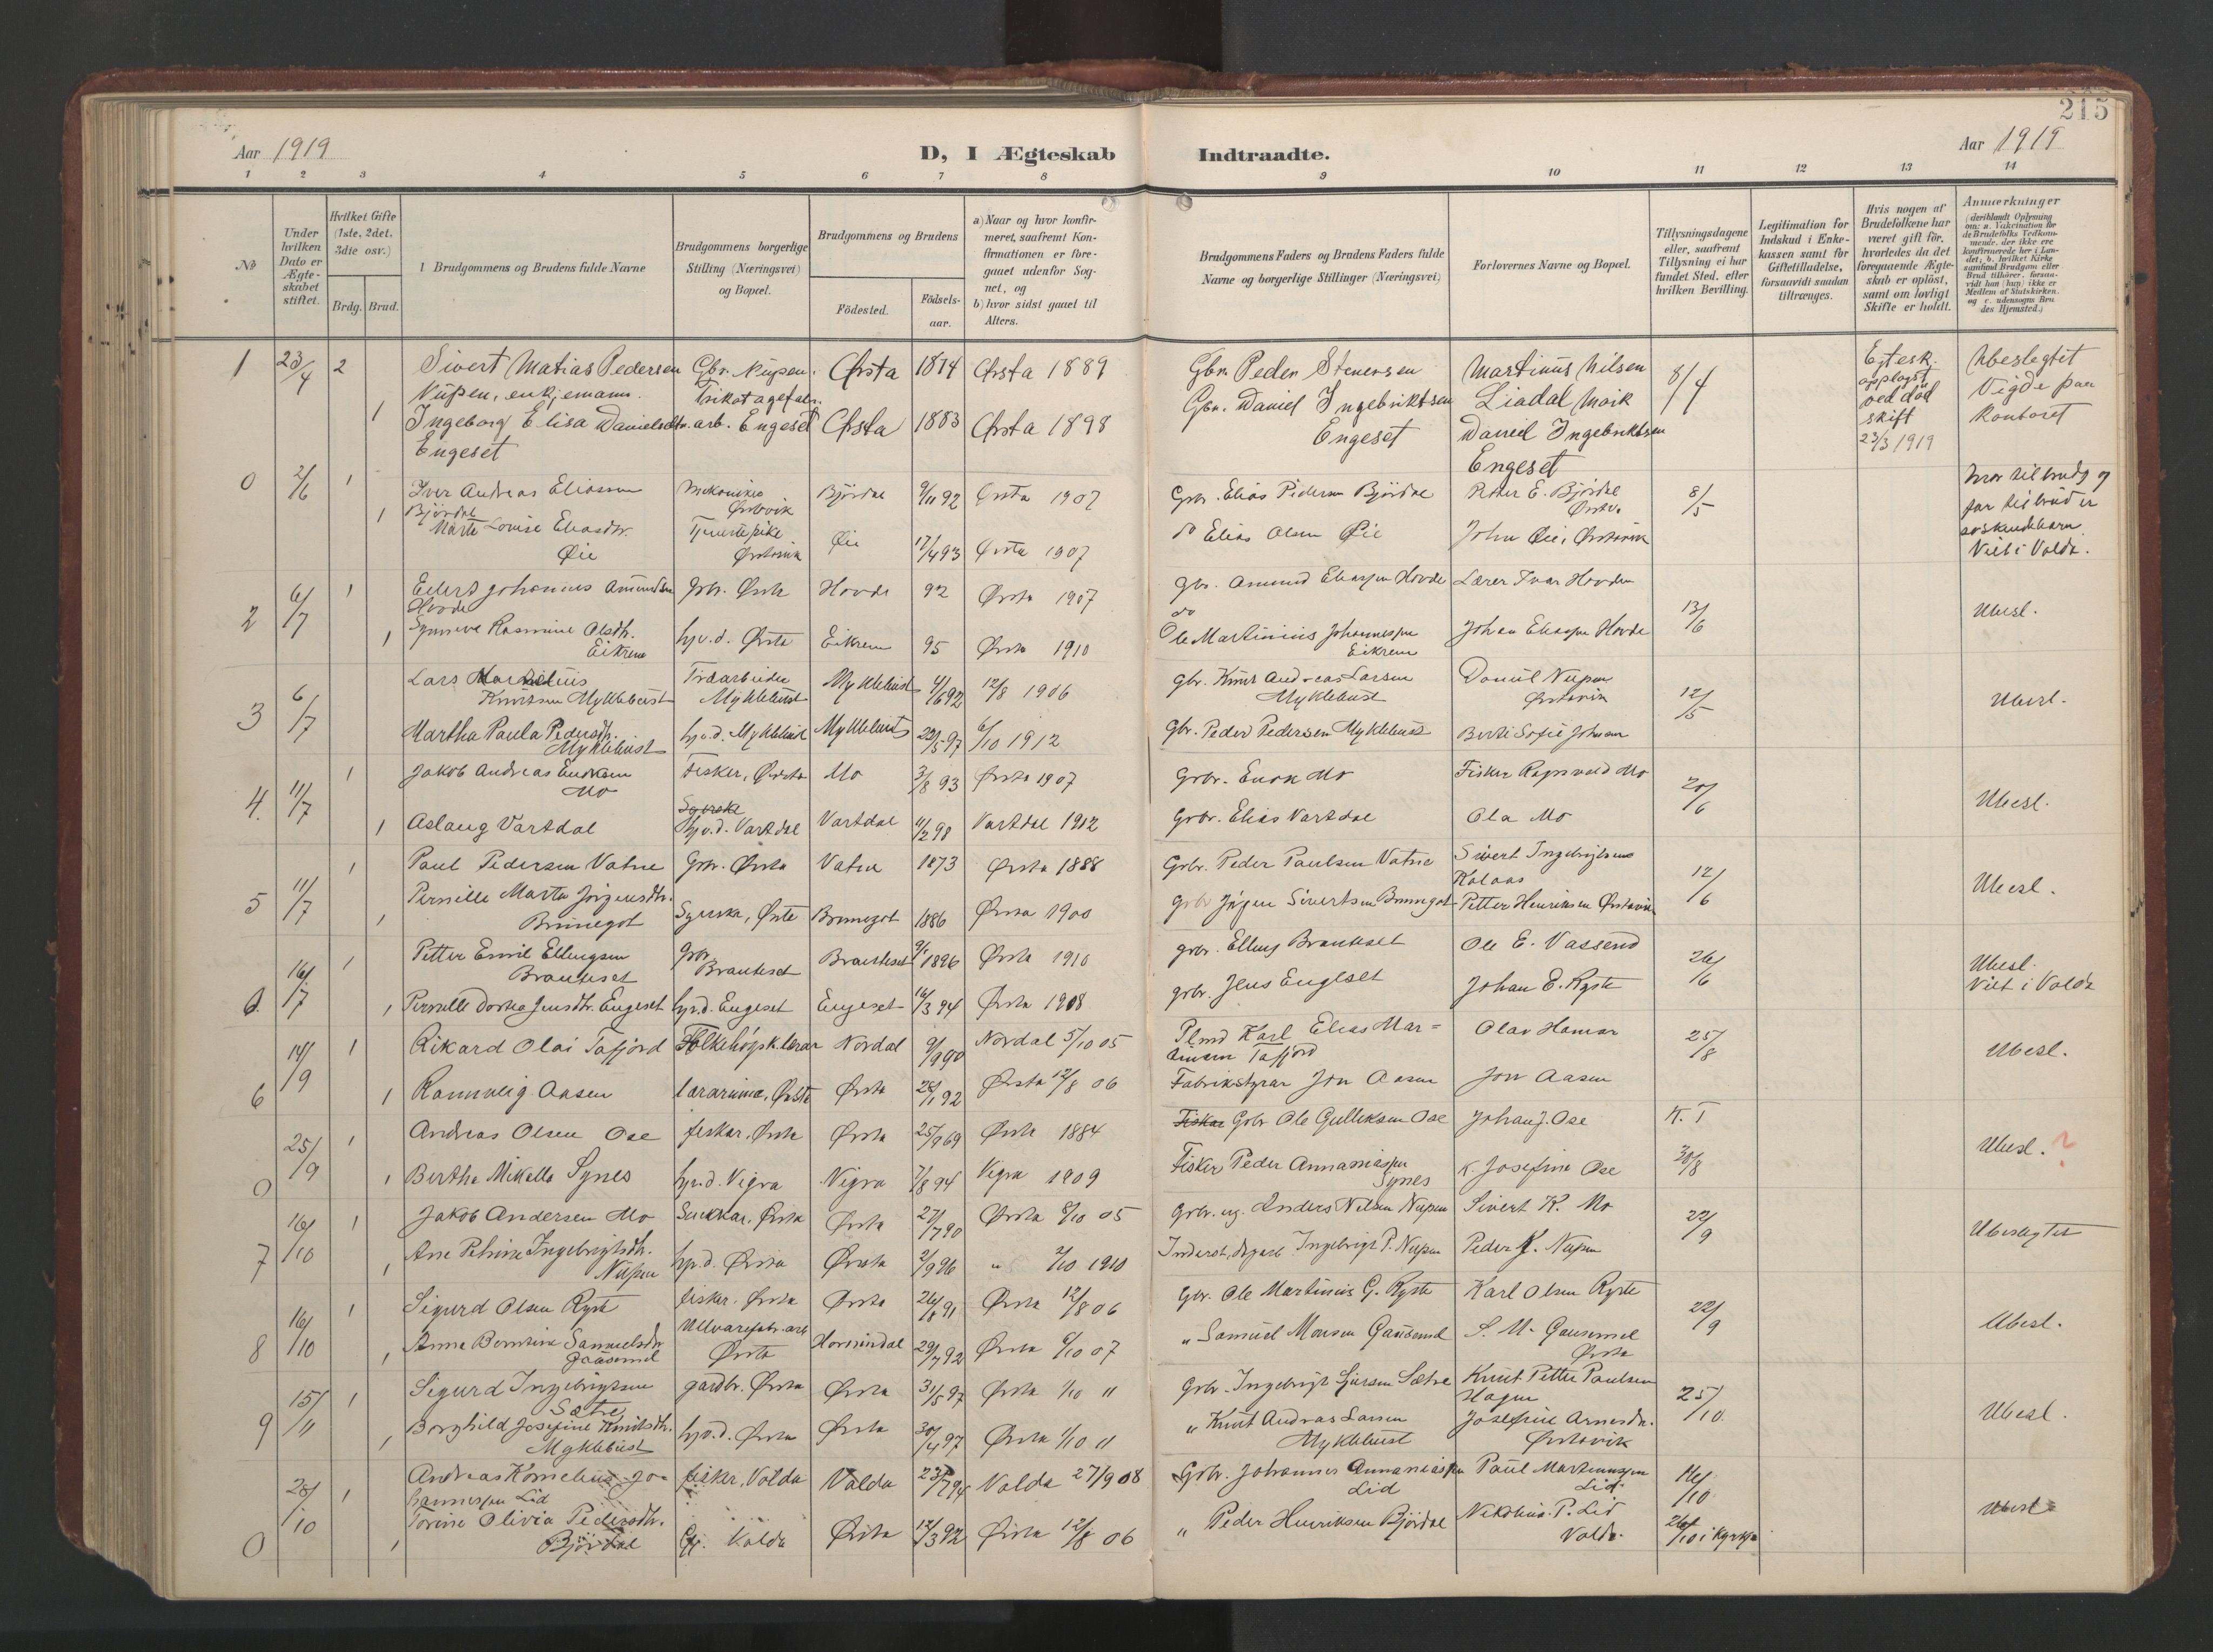 215
Aar 1919
D, I Ægteskab Indtraadte.
Aar 1919
1 2 3 4 5 6 7 8 9 10 11 12 13 14
No
Under hvilken Dato er Ægte-skabet stiftet.
Hvilket Gifte (1ste, 2det. 3die osv.)
Brdg. Brud.
Brudgommens og Brudens fulde Navne
Brudgommens borgerlige Stilling (Næringsvei) og Bopæl.
Brudgommens og Brudens
Födested.
Födsels-aar.
a) Naar og hvor konfir-meret, saafremt Kon-firmationen er fore-gaaet udenfor Sog-net, og
b) hvor sidst gaaet til Alters.
Brudgommens Faders og Brudens Faders fulde Navne og borgerlige Stillinger (Næringsvei)
Forlovernes Navne og Bopæl.
Tillysningsdagene eller, saafremt Tillysning ei har fundet Sted, efter hvilken Bevilling.
Legitimation for Indskud i Enke-kassen samt for Giftetilladelse, forsaavidt saadan tiltrænges.
Hvis nogen af Brudefolkene har været gift för, hvorledes da det foregaaende Ægte-skab er oplöst, samt om lovligt Skifte er holdt.
Anmærkninger
1 23/4 2 Sivert Matias Pedersen Gbr. Nupen. Ørsta 1874 Ørsta 1889 Gbr. Peder Stenersen Martinus Nilsen 8/4 Egtesk. Ubeslegtet
Nupen, enkjemann. Trikotagefabr. Liadal oppløyst Vigde paa
1 Ingeborg Elisa Danielsdtr. arb. Engeset Ørsta 1883 Ørsta 1898 Gbr. Daniel Ingebriktsen Daniel Ingebriktsen ved död kontoret
Engeset Engeset Engeset skift 23/3 1919
0 2/6 1 Iver Andreas Eliassen Mekanikar Björdal 9/11 92 Ørsta 1907 Gbr. Elias Pedersen Björdal Petter E. Björdal 8/5 mor til brudg og
Björdal Ørstavik Ørsta far til brud er
1 Marta Lovise Eliasdtr. Tjenestepike Øie 17/4 93 Ørsta 1907 do Elias Olsen Øie John Øie, Ørstavik söskendebarn
Øie Ørstavik Viet i Volda.
2 6/7 1 Johannes Amundsen Gbr. Ørsta Hovde 92 Ørsta 1907 Gbr. Amund Eliassen Hovde Lærer Ivar Hovden 13/6 Ubesl.
Hovde do
1 Synneve Rasmine Olsdtr. hjv.d. Ørsta Eikrem 95 Ørsta 1910 Ole Martinius Johannessen Johan Eliassen Hovde
Eikrem Eikrem
3 6/7 Lars Træarbeider Myklebust 4/6 92 12/8 1906 Gbr. Knut Andreas Larsen Daniel Nupen 12/5 Ubesl.
Knutsen Myklebust Myklebust Myklebust Ørstavik
Martha Paula Pedersdtr. hjv.d. Myklebust Myklebust 22/5 97 6/10 1912 Gbr. Peder Pedersen Myklebust Berte Sofie Johnsen
Myklebust
4. 11/7 1 Jakob Andreas Enoksen Fisker, Ørsta Mo 3/8 93 Ørsta 1907 Grbr. Enok Mo Fisker Ragnvald Mo 20/6 Ubesl.
Mo
1 Aslaug Vartdal hjv.d. Vartdal Vartdal 11/2 98 Vartdal 1912 Grbr. Elias Vartdal Ola Mo
5 11/7 1 Paul Pedersen Vatne Grbr. Ørsta Vatne 1873 Ørsta 1888 Grbr. Peder Paulsen Vatne Sivert Ingebrigtsen 12/6 Ubesl.
Kolaas
1 Pernille Marta Jörgensdtr. Syerska, Ørsta Brunegot 1886 Ørsta 1900 Grbr Jörgen Sivertsen Brunegot Petter Henriksen Ørstavik
Brunegot
6 16/7 1 Petter Emil Ellingsen Gbr Brauteset 9/1 1896 Ørsta 1910 grbr. Elling Brauteset Ole E. Vassend 26/6 Ubesl.
Brauteset Brauteset Viet i Volda
1 Pernille Dortea Jensdtr. Engeset hjv.d. Engeset Engeset 16/3 94 Ørsta 1908 grbr. Jens Engeset Johan E. Ryste
6 14/9 1 Rikard Olai Tafjord Folkehögsk.lærar Nordal 9/9 90 Nordal 5/10 05 Plmd Karl Elias Mar- Olav Hamar 25/8 Ubesl.
tinsen Tafjord
1 Rannveig Aasen lærarinne, Ørsta Ørsta 28/1 92 Ørsta 12/8 06 Fabrikstyrar Jon Aasen Jon Aasen
0 25/9 1 Andreas Olsen Ose fiskar, Ørsta Ørsta 25/9 69 Ørsta 1884 Fiskar Grbr Ole Gulleksen Ose Johan J. Ose K. T Ubesl. ?
1 Bertha Mikalla Synes hjv.d. Vigra Vigra 7/8 94 Vigra 1909 Fisker Peder Annaniassen K. Josefine Ose 30/8
Synes
7 16/10 1 Jakob Andersen Mo Snikkar, Ørsta Ørsta 27/7 90 Ørsta 8/10 05 Grbr. og Anders Nilsen Nupen Sivert K. Mo 22/9 Ubeslegtet
1 Ane Petrine Ingebrigtsdtr. hjv.d. Ørsta Ørsta 2/9 96 " 2/10 1910 Inderst, Ingebrigt P. Nupen Peder K. Nupen
Nupen
8 16/10 1 Sigurd Olsen Ryste fisker. Ørsta Ørsta 26/8 91 Ørsta 12/8 06 Gbr. Ole Martinus G. Ryste Karl Olsen Ryste 22/9 Ubesl.
1 Anna Berntine Samuelsdtr. Ullvarefabr.arb Hornindal 29/7 92 Ørsta 6/10 07 " Samuel Monsen Gausemel S. M. Gausemel
Gausemel Ørsta Ørsta
9 15/11 1 Sigurd Ingebrigtsen gardbr. Ørsta Ørsta 31/5 97 Ørsta 1/10 11 Grbr. Ingebrigt Sjursen Sætre Knut Petter Paulsen 25/10 Ubesl.
Sætre Hagen
1 Borghild Josefine Knutsdtr. hjv.d. Ørsta Ørsta 30/4 97 Ørsta 1/10 11 " Knut Andreas Larsen Josefine Arnesdtr.
Myklebust Myklebust Ørstavik
0 28/10 1 Andreas Kornelius Jo- fisker, Volda Volda 23/7 94 Volda 27/9 08 Grbr. Johannes Annaniassen Paul Martinussen 14/10 Ubesl
hannessen Lid Lid Lid
1 Torine Olivia Pedersdtr. Volda Ørsta 12/3 92 Ørsta 12/8 06 " Peder Henriksen Björdal Nikolius P. Lid 26/10 i kyrkja
Björdal Volda.